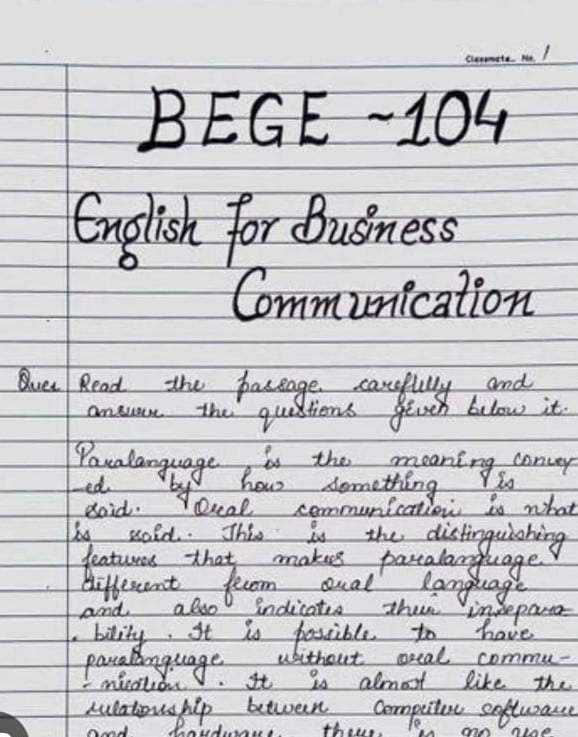 Classmate No. 1
BEGE ~104
English for Business
Communication
Ques Read the passage carefully and
answer the questions given below it.
Paralanguage is the meaning convey
-ed by how something is
said. Oral communication is what
is said. This is the distinguishing
features that makes paralanguage
different from oral language
and also indicates their insepara
. bility. It is possible to have
paralanguage without oral commu-
- nication. It is almost like the
relationship between Computer software
and hardware there is no use